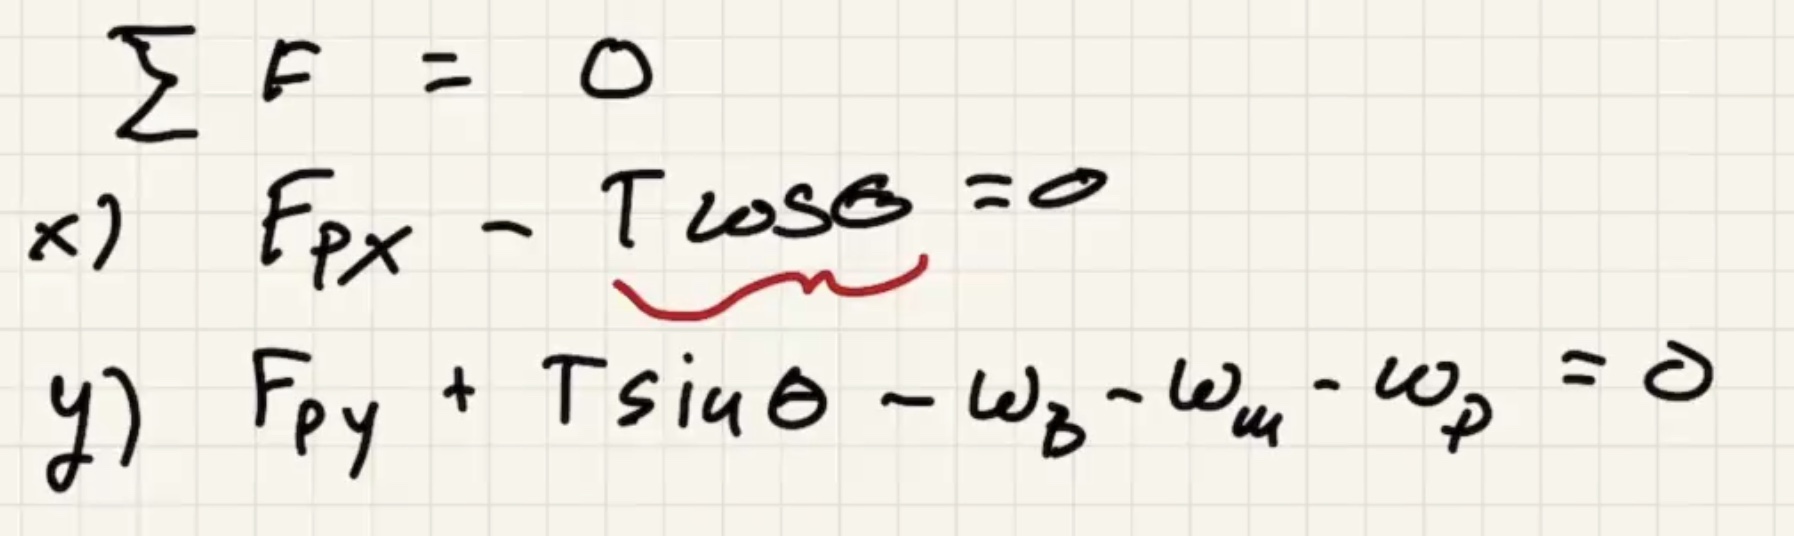 ∑ F = 0
x) F_{px} - T cosθ = 0
y) F_{py} + T sinθ - ω_B - ω_m - ω_p = 0